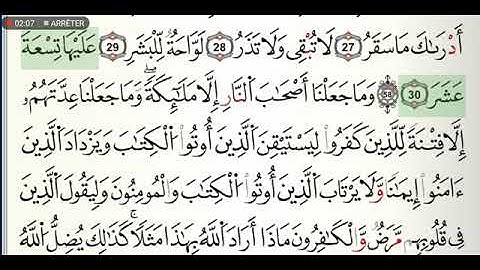 02:07 ARRÊTER
أَدْرَىٰكَ مَا سَقَرُ 27 لَا تُبْقِى وَلَا تَذَرُ 28 لَوَّاحَةٌ لِّلْبَشَرِ 29 عَلَيْهَا تِسْعَةَ
عَشَرَ 30 58 وَمَا جَعَلْنَا أَصْحَٰبَ ٱلنَّارِ إِلَّا مَلَٰٓئِكَةً ۖ وَمَا جَعَلْنَا عِدَّتَهُمْ
إِلَّا فِتْنَةً لِّلَّذِينَ كَفَرُوا۟ لِيَسْتَيْقِنَ ٱلَّذِينَ أُوتُوا۟ ٱلْكِتَٰبَ وَيَزْدَادَ ٱلَّذِينَ
ءَامَنُوٓا۟ إِيمَٰنًا ۙ وَلَا يَرْتَابَ ٱلَّذِينَ أُوتُوا۟ ٱلْكِتَٰبَ وَٱلْمُؤْمِنُونَ وَلِيَقُولَ ٱلَّذِينَ
فِى قُلُوبِهِم مَّرَضٌ وَٱلْكَٰفِرُونَ مَاذَآ أَرَادَ ٱللَّهُ بِهَٰذَا مَثَلًا ۚ كَذَٰلِكَ يُضِلُّ ٱللَّهُ